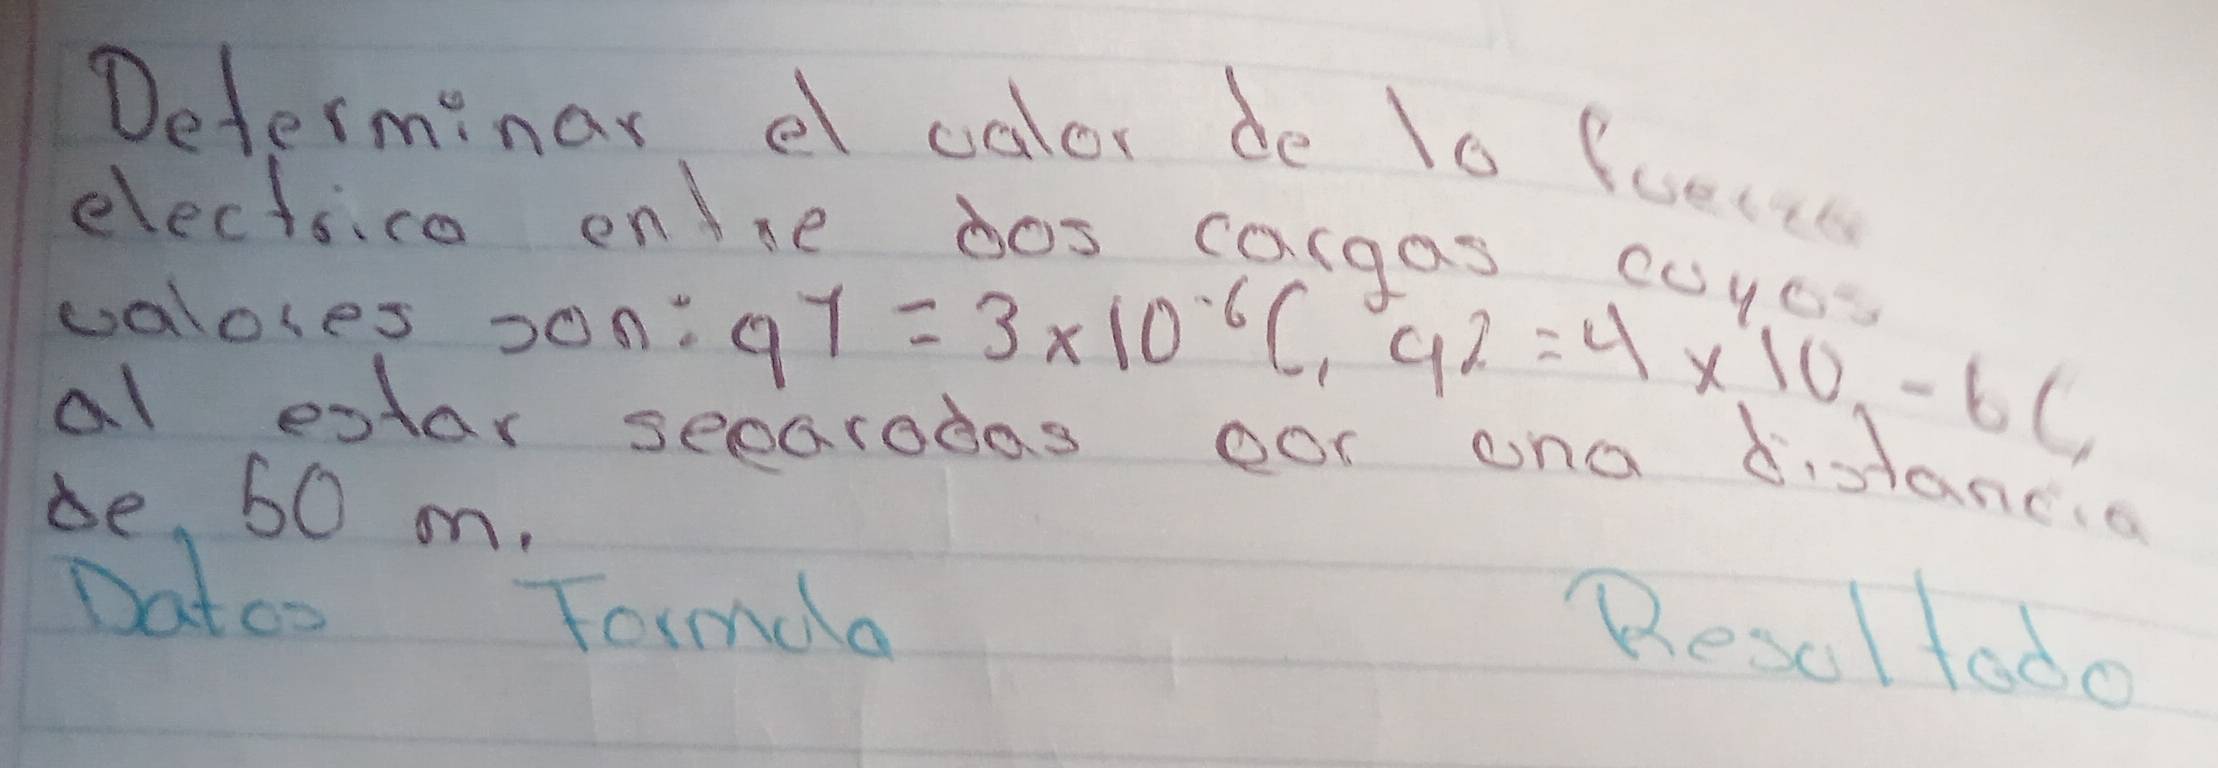 Determinar el valor de la fuerza
electrica entre dos cargas cuyos
valores son: q1 = 3 x 10⁻⁶C, q2 = 4 x 10 - 6C,
al estar separadas por una distancia
de 50 m.
Datos Formula Resultado